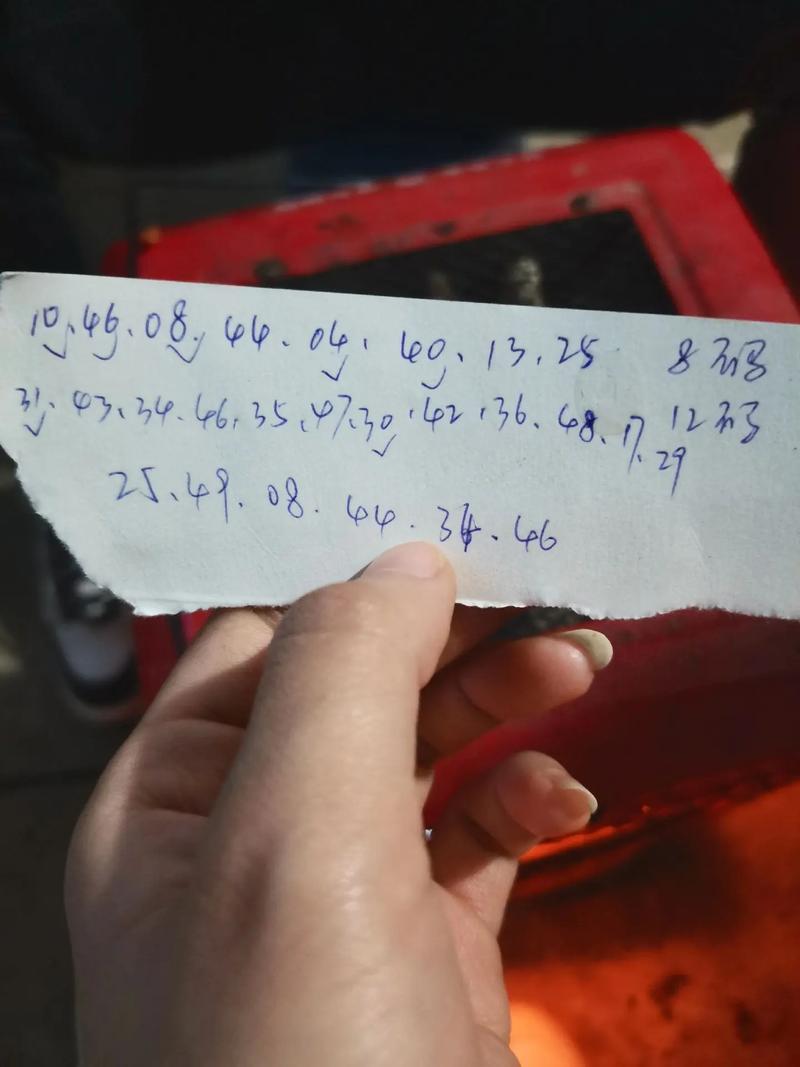 10.46.08.44.04.40.13.25 8码
31.43.34.46.35.47.30.42.36.48.17.29 12码
25.49.08.44.34.46